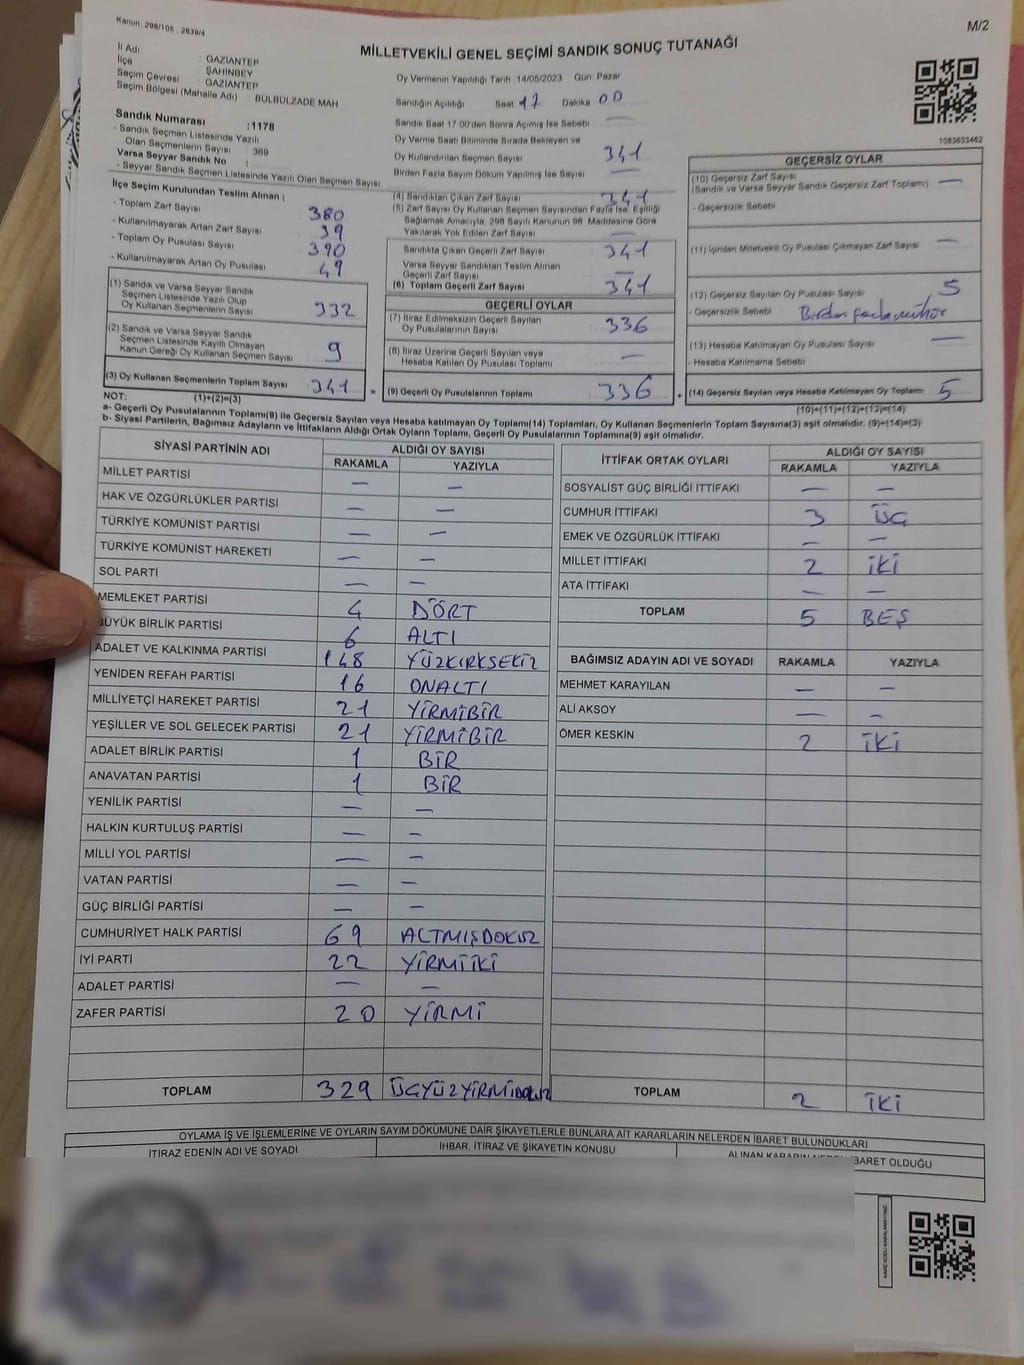 Kanun, 298/105 , 2839/4
M/2
MİLLETVEKİLİ GENEL SEÇİMİ SANDIK SONUÇ TUTANAĞI
İl Adı : GAZİANTEP
İlçe : ŞAHİNBEY
Seçim Çevresi : GAZİANTEP
Seçim Bölgesi (Mahalle Adı) : BÜLBÜLZADE MAH
Sandık Numarası :1178
- Sandık Seçmen Listesinde Yazılı
Olan Seçmenlerin Sayısı : 369
Varsa Seyyar Sandık No :
- Seyyar Sandık Seçmen Listesinde Yazılı Olan Seçmen Sayısı
İlçe Seçim Kurulundan Teslim Alınan ;
- Toplam Zarf Sayısı 380
- Kullanılmayarak Artan Zarf Sayısı 39
- Toplam Oy Pusulası Sayısı 390
- Kullanılmayarak Artan Oy Pusulası 49
(1) Sandık ve Varsa Seyyar Sandık
Seçmen Listesinde Yazılı Olup
Oy Kullanan Seçmenlerin Sayısı 332
(2) Sandık ve Varsa Seyyar Sandık
Seçmen Listesinde Kayıtlı Olmayan
Kanun Gereği Oy Kullanan Seçmen Sayısı 9
(3) Oy Kullanan Seçmenlerin Toplam Sayısı 341
Oy Vermenin Yapıldığı Tarih :14/05/2023 Gün: Pazar
Sandığın Açıldığı Saat 17 Dakika 00
Sandık Saat 17:00'den Sonra Açılmış İse Sebebi —
Oy Verme Saati Bitiminde Sırada Bekleyen ve
Oy Kullandırılan Seçmen Sayısı 341
Birden Fazla Sayım Döküm Yapılmış İse Sayısı —
(4) Sandıktan Çıkan Zarf Sayısı 341
(5) Zarf Sayısı Oy Kullanan Seçmen Sayısından Fazla İse, Eşitliği
Sağlamak Amacıyla, 298 Sayılı Kanunun 98. Maddesine Göre
Yakılarak Yok Edilen Zarf Sayısı —
Sandıkta Çıkan Geçerli Zarf Sayısı 341
Varsa Seyyar Sandıktan Teslim Alınan
Geçerli Zarf Sayısı —
(6) Toplam Geçerli Zarf Sayısı 341
GEÇERLİ OYLAR
(7) İtiraz Edilmeksizin Geçerli Sayılan
Oy Pusulalarının Sayısı 336
(8) İtiraz Üzerine Geçerli Sayılan veya
Hesaba Katılan Oy Pusulası Toplamı —
= (9) Geçerli Oy Pusulalarının Toplamı 336
1083633462
GEÇERSİZ OYLAR
(10) Geçersiz Zarf Sayısı —
(Sandık ve Varsa Seyyar Sandık Geçersiz Zarf Toplamı)
- Geçersizlik Sebebi
(11) İçinden Milletvekili Oy Pusulası Çıkmayan Zarf Sayısı —
(12) Geçersiz Sayılan Oy Pusulası Sayısı 5
- Geçersizlik Sebebi Birden fazla mühür
(13) Hesaba Katılmayan Oy Pusulası Sayısı —
- Hesaba Katılmama Sebebi
+ (14) Geçersiz Sayılan veya Hesaba Katılmayan Oy Toplamı 5
NOT: (1)+(2)=(3)
(10)+(11)+(12)+(13)=(14)
a- Geçerli Oy Pusulalarının Toplamı(9) ile Geçersiz Sayılan veya Hesaba katılmayan Oy Toplamı(14) Toplamları, Oy Kullanan Seçmenlerin Toplam Sayısına(3) eşit olmalıdır. (9)+(14)=(3)
b- Siyasi Partilerin, Bağımsız Adayların ve İttifakların Aldığı Ortak Oyların Toplamı, Geçerli Oy Pusulalarının Toplamına(9) eşit olmalıdır.
SİYASİ PARTİNİN ADI ALDIĞI OY SAYISI
RAKAMLA YAZIYLA
MİLLET PARTİSİ — —
HAK VE ÖZGÜRLÜKLER PARTİSİ — —
TÜRKİYE KOMÜNİST PARTİSİ — —
TÜRKİYE KOMÜNİST HAREKETİ — —
SOL PARTİ — —
MEMLEKET PARTİSİ 4 DÖRT
BÜYÜK BİRLİK PARTİSİ 6 ALTI
ADALET VE KALKINMA PARTİSİ 148 YÜZKIRKSEKİZ
YENİDEN REFAH PARTİSİ 16 ONALTI
MİLLİYETÇİ HAREKET PARTİSİ 21 YİRMİBİR
YEŞİLLER VE SOL GELECEK PARTİSİ 21 YİRMİBİR
ADALET BİRLİK PARTİSİ 1 BİR
ANAVATAN PARTİSİ 1 BİR
YENİLİK PARTİSİ — —
HALKIN KURTULUŞ PARTİSİ — —
MİLLİ YOL PARTİSİ — —
VATAN PARTİSİ — —
GÜÇ BİRLİĞİ PARTİSİ — —
CUMHURİYET HALK PARTİSİ 69 ALTMIŞDOKUZ
İYİ PARTİ 22 YİRMİİKİ
ADALET PARTİSİ — —
ZAFER PARTİSİ 20 YİRMİ
TOPLAM 329 ÜÇYÜZYİRMİDOKUZ
İTTİFAK ORTAK OYLARI ALDIĞI OY SAYISI
RAKAMLA YAZIYLA
SOSYALİST GÜÇ BİRLİĞİ İTTİFAKI — —
CUMHUR İTTİFAKI 3 ÜÇ
EMEK VE ÖZGÜRLÜK İTTİFAKI — —
MİLLET İTTİFAKI 2 İKİ
ATA İTTİFAKI — —
TOPLAM 5 BEŞ
BAĞIMSIZ ADAYIN ADI VE SOYADI RAKAMLA YAZIYLA
MEHMET KARAYILAN — —
ALİ AKSOY — —
ÖMER KESKİN 2 İKİ
TOPLAM 2 İKİ
OYLAMA İŞ VE İŞLEMLERİNE VE OYLARIN SAYIM DÖKÜMÜNE DAİR ŞİKAYETLERLE BUNLARA AİT KARARLARIN NELERDEN İBARET BULUNDUKLARI
İTİRAZ EDENİN ADI VE SOYADI İHBAR, İTİRAZ VE ŞİKAYETİN KONUSU ALINAN KARARIN NEDEN İBARET OLDUĞU